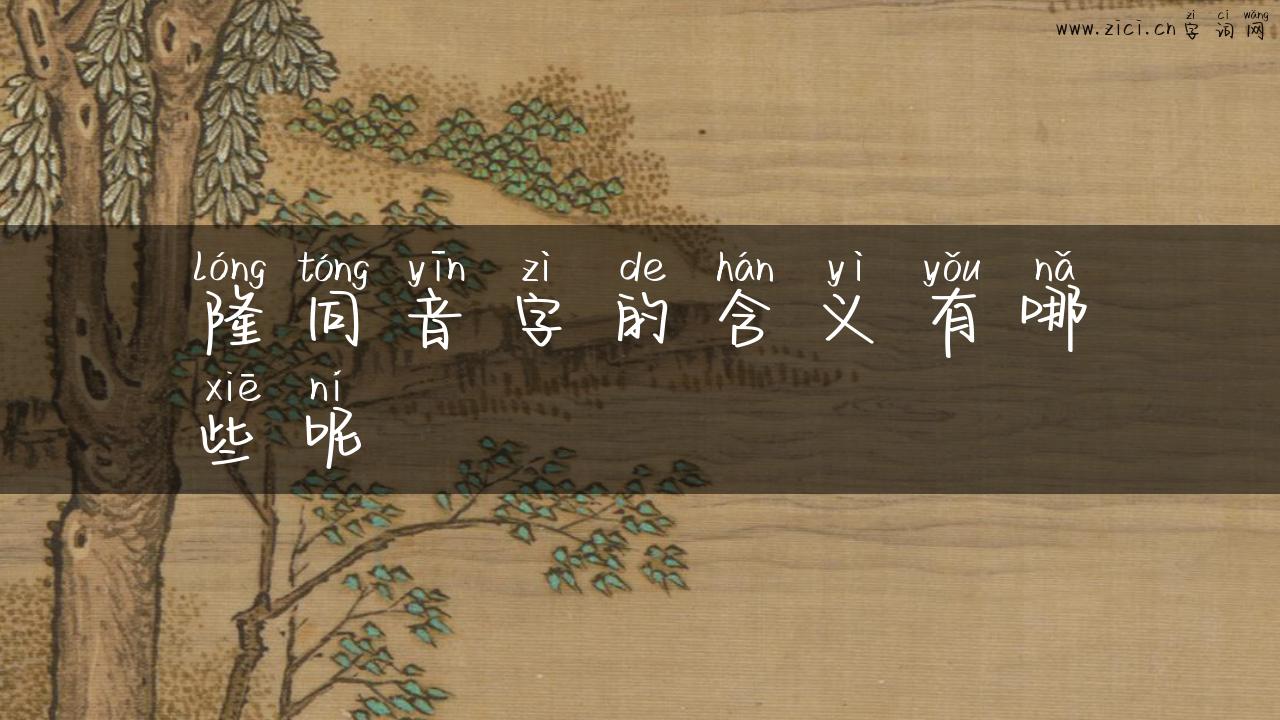 zì cí wǎng
www.zici.cn 字词网
lóng tóng yīn zì de hán yì yǒu nǎ
隆同音字的含义有哪
xiē ní
些呢